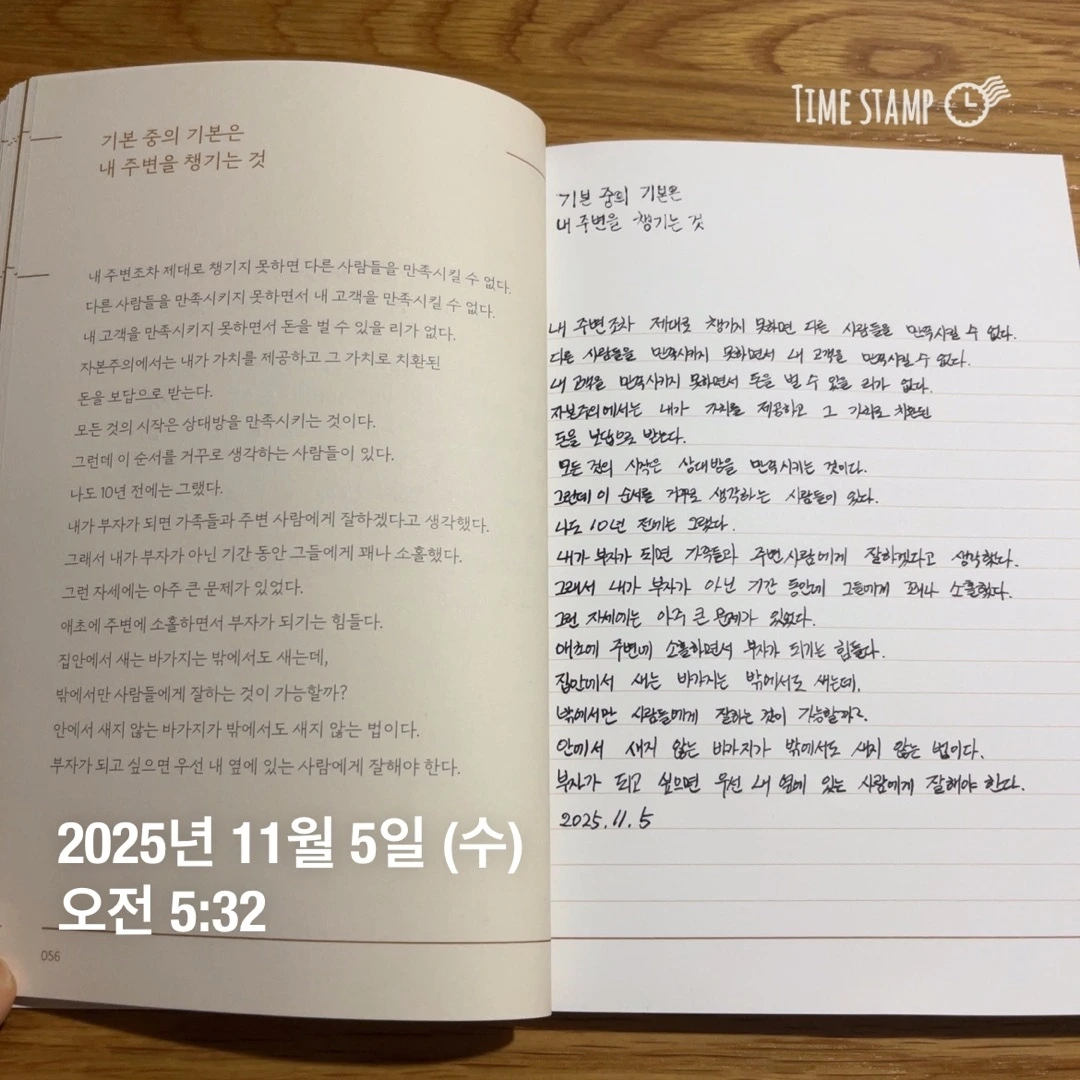 TIME STAMP
기본 중의 기본은
내 주변을 챙기는 것
내 주변조차 제대로 챙기지 못하면 다른 사람들을 만족시킬 수 없다.
다른 사람들을 만족시키지 못하면서 내 고객을 만족시킬 수 없다.
내 고객을 만족시키지 못하면서 돈을 벌 수 있을 리가 없다.
자본주의에서는 내가 가치를 제공하고 그 가치로 치환된
돈을 보답으로 받는다.
모든 것의 시작은 상대방을 만족시키는 것이다.
그런데 이 순서를 거꾸로 생각하는 사람들이 있다.
나도 10년 전에는 그랬다.
내가 부자가 되면 가족들과 주변 사람에게 잘하겠다고 생각했다.
그래서 내가 부자가 아닌 기간 동안 그들에게 꽤나 소홀했다.
그런 자세에는 아주 큰 문제가 있었다.
애초에 주변에 소홀하면서 부자가 되기는 힘들다.
집안에서 새는 바가지는 밖에서도 새는데,
밖에서만 사람들에게 잘하는 것이 가능할까?
안에서 새지 않는 바가지가 밖에서도 새지 않는 법이다.
부자가 되고 싶으면 우선 내 옆에 있는 사람에게 잘해야 한다.
2025년 11월 5일 (수)
오전 5:32
056
기본 중의 기본은
내 주변을 챙기는 것
내 주변조차 제대로 챙기지 못하면 다른 사람들을 만족시킬 수 없다.
다른 사람들을 만족시키지 못하면서 내 고객을 만족시킬 수 없다.
내 고객을 만족시키지 못하면서 돈을 벌 수 있을 리가 없다.
자본주의에서는 내가 가치를 제공하고 그 가치로 치환된
돈을 보답으로 받는다.
모든 것의 시작은 상대방을 만족시키는 것이다.
그런데 이 순서를 거꾸로 생각하는 사람들이 있다.
나도 10년 전에는 그랬다.
내가 부자가 되면 가족들과 주변 사람에게 잘하겠다고 생각했다.
그래서 내가 부자가 아닌 기간 동안에 그들에게 꽤나 소홀했다.
그런 자세에는 아주 큰 문제가 있었다.
애초에 주변에 소홀하면서 부자가 되기는 힘들다.
집안에서 새는 바가지는 밖에서도 새는데,
밖에서만 사람들에게 잘하는 것이 가능할까?
안에서 새지 않는 바가지가 밖에서도 새지 않는 법이다.
부자가 되고 싶으면 우선 내 옆에 있는 사람에게 잘해야 한다.
2025.11.5